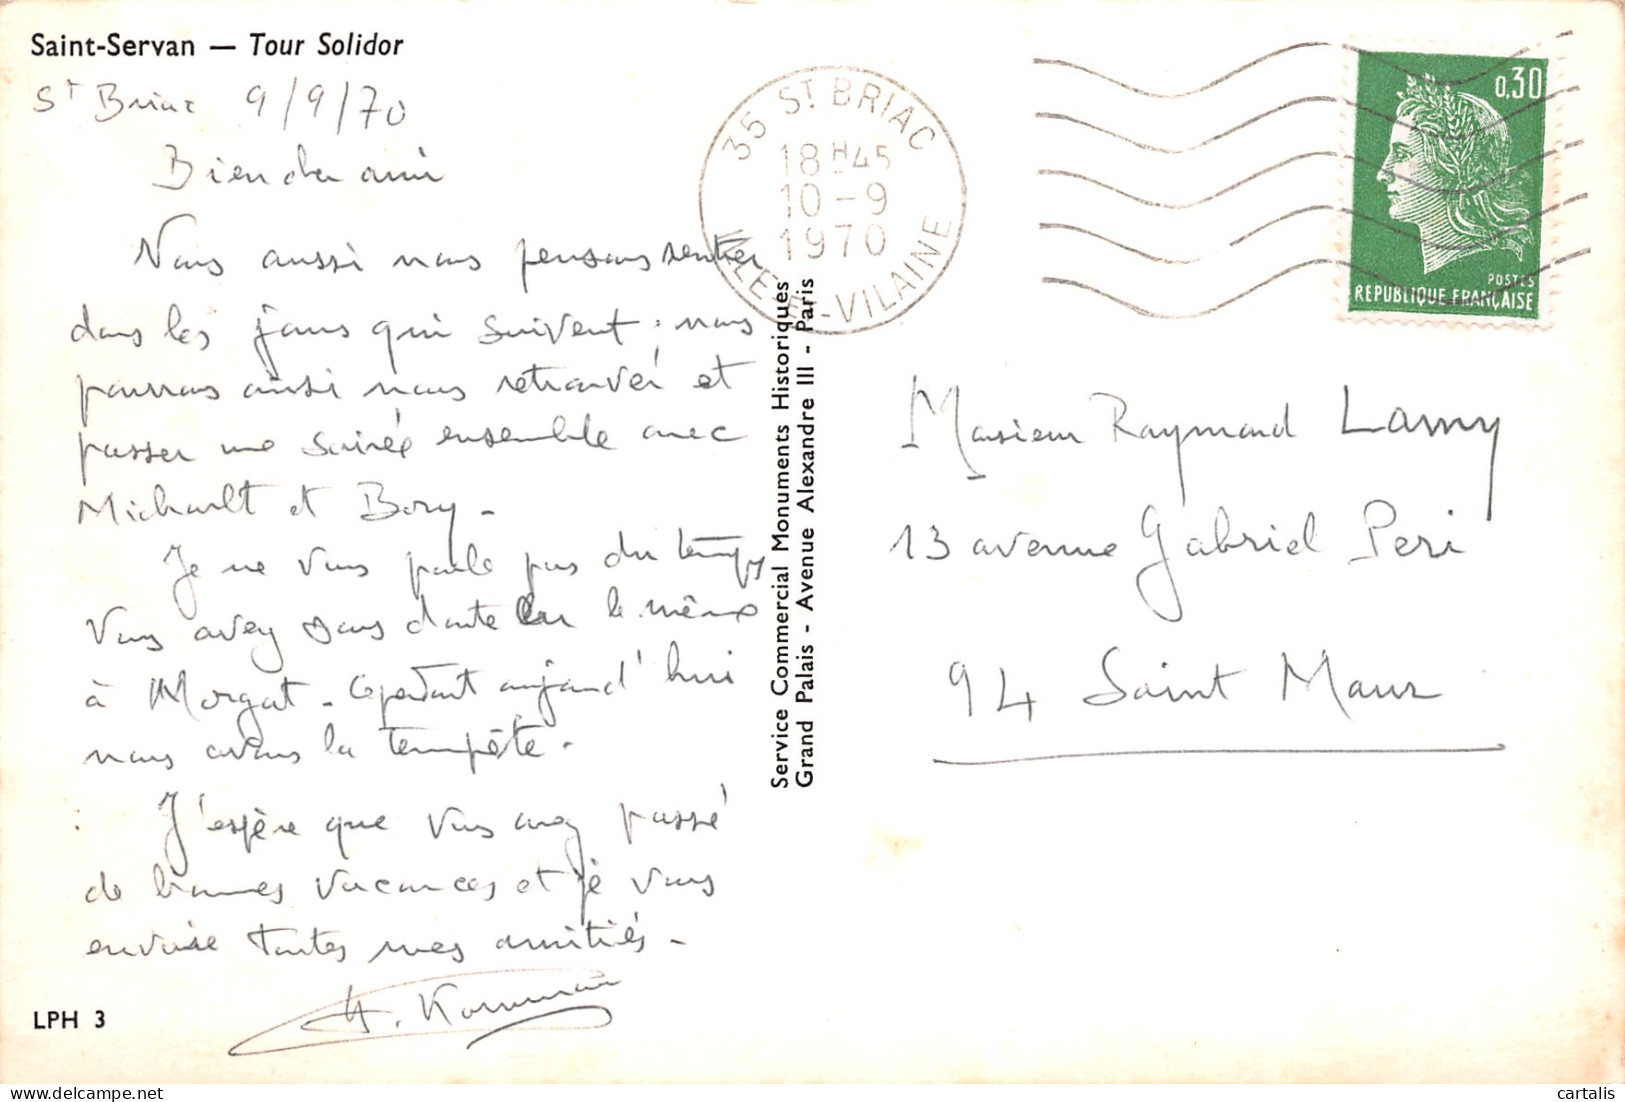 Saint-Servan — Tour Solidor
St Briac 9/9/70
Bien cher ami
Nous aussi nous pensons rentrer
dans les jours qui suivent, nous
pourrons ainsi nous retrouver et
passer une soirée ensemble avec
Michault et Bory -
Je ne vous parle pas du temps
Vous avez sans doute eu le même
à Morgat - Cependant aujourd'hui
nous avons la tempête.
J'espère que vous avez passé
de bonnes vacances et je vous
envoie toutes mes amitiés -
LPH 3
Service Commercial Monuments Historiques
Grand Palais - Avenue Alexandre III - Paris
35 ST BRIAC
18H45
10-9
1970
ILLE-ET-VILAINE
0,30
POSTES
REPUBLIQUE FRANÇAISE
Monsieur Raymond Lamy
13 avenue Gabriel Peri
94 Saint Maur
cartalis